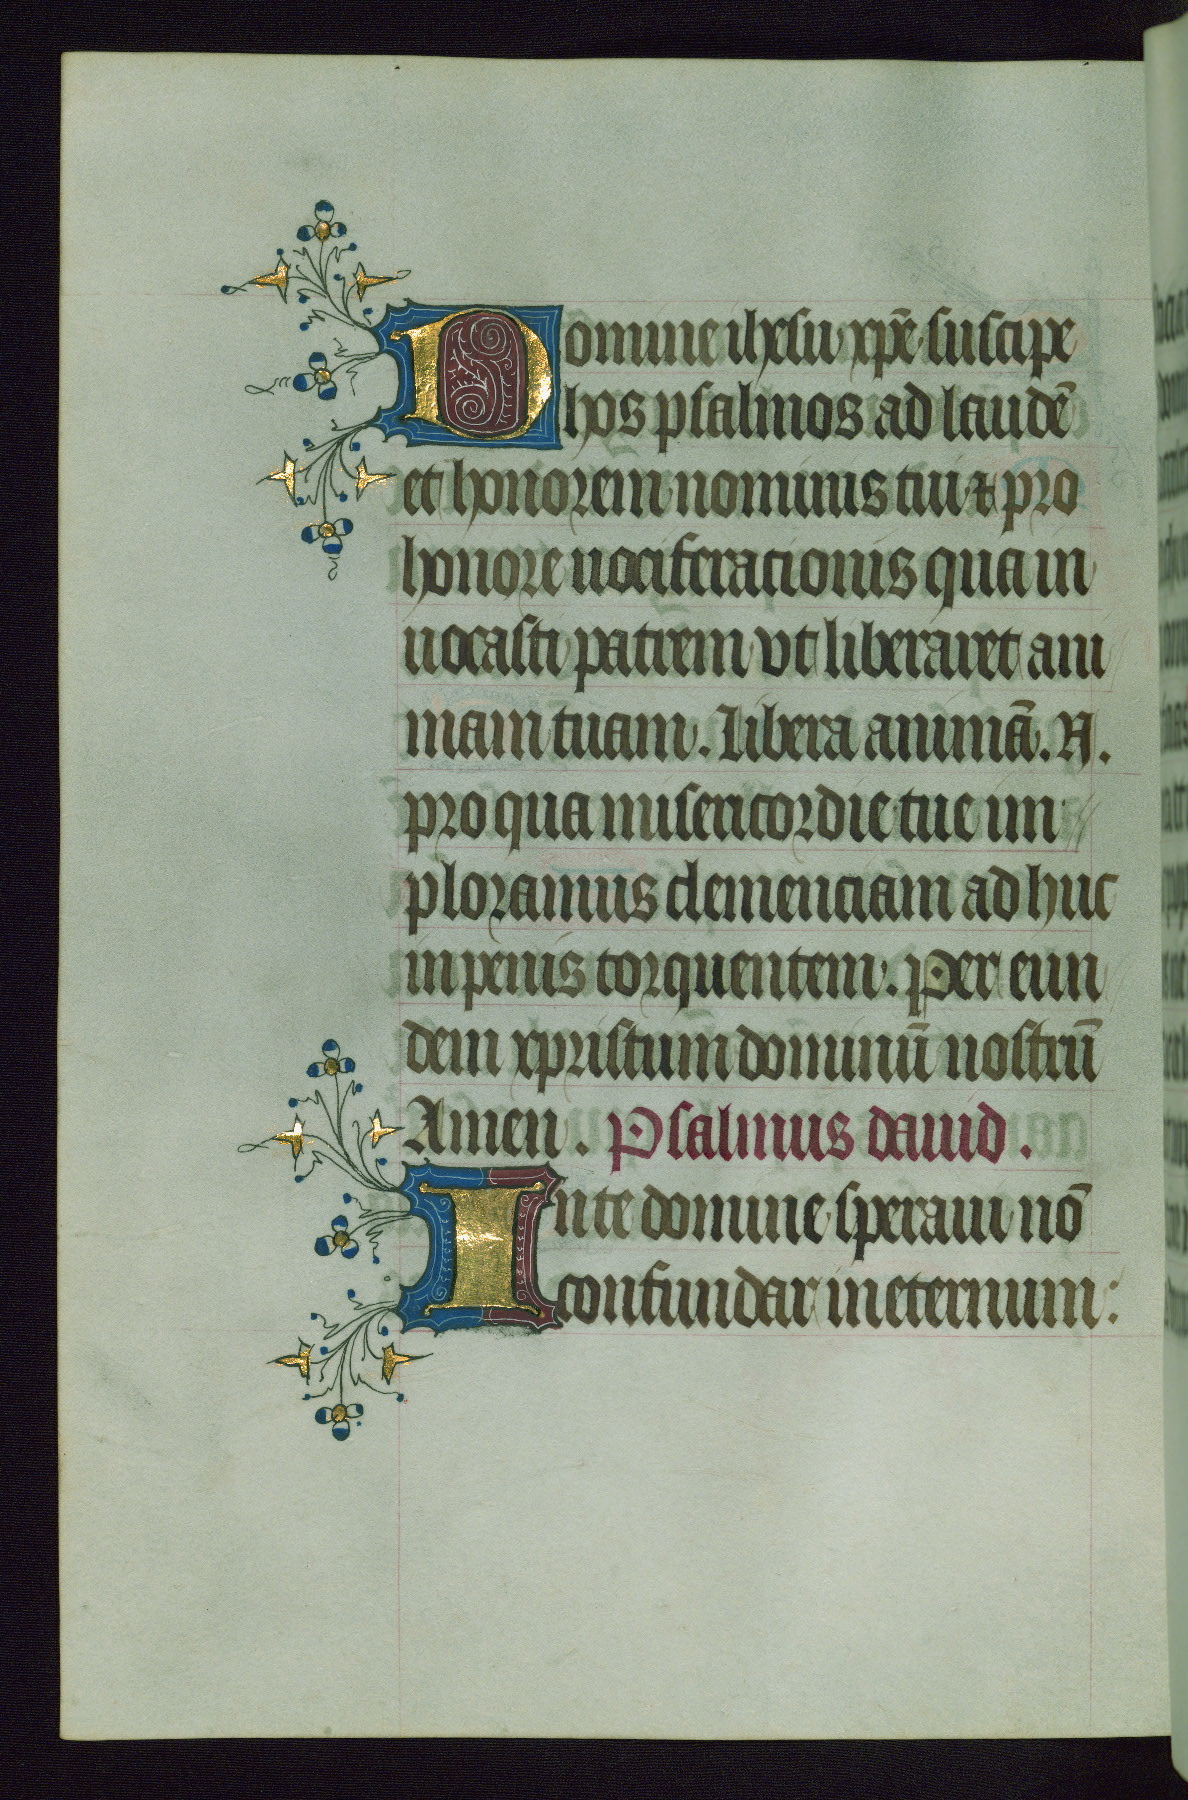 Domine ihesu xp̄e suscipe
hos psalmos ad laudē
et honorem nominis tui ⁊ pro
honore uociferacionis qua in
uocasti patrem vt liberaret ani
mam tuam. Libera animā. N.
pro qua misericordie tue im
ploramus clemenciam ad huc
in penis torquentem. Per eun
dem xpristum dominū nostrū
Amen. Psalmus dauid.
In te domine speraui nō
confundar in eternum: